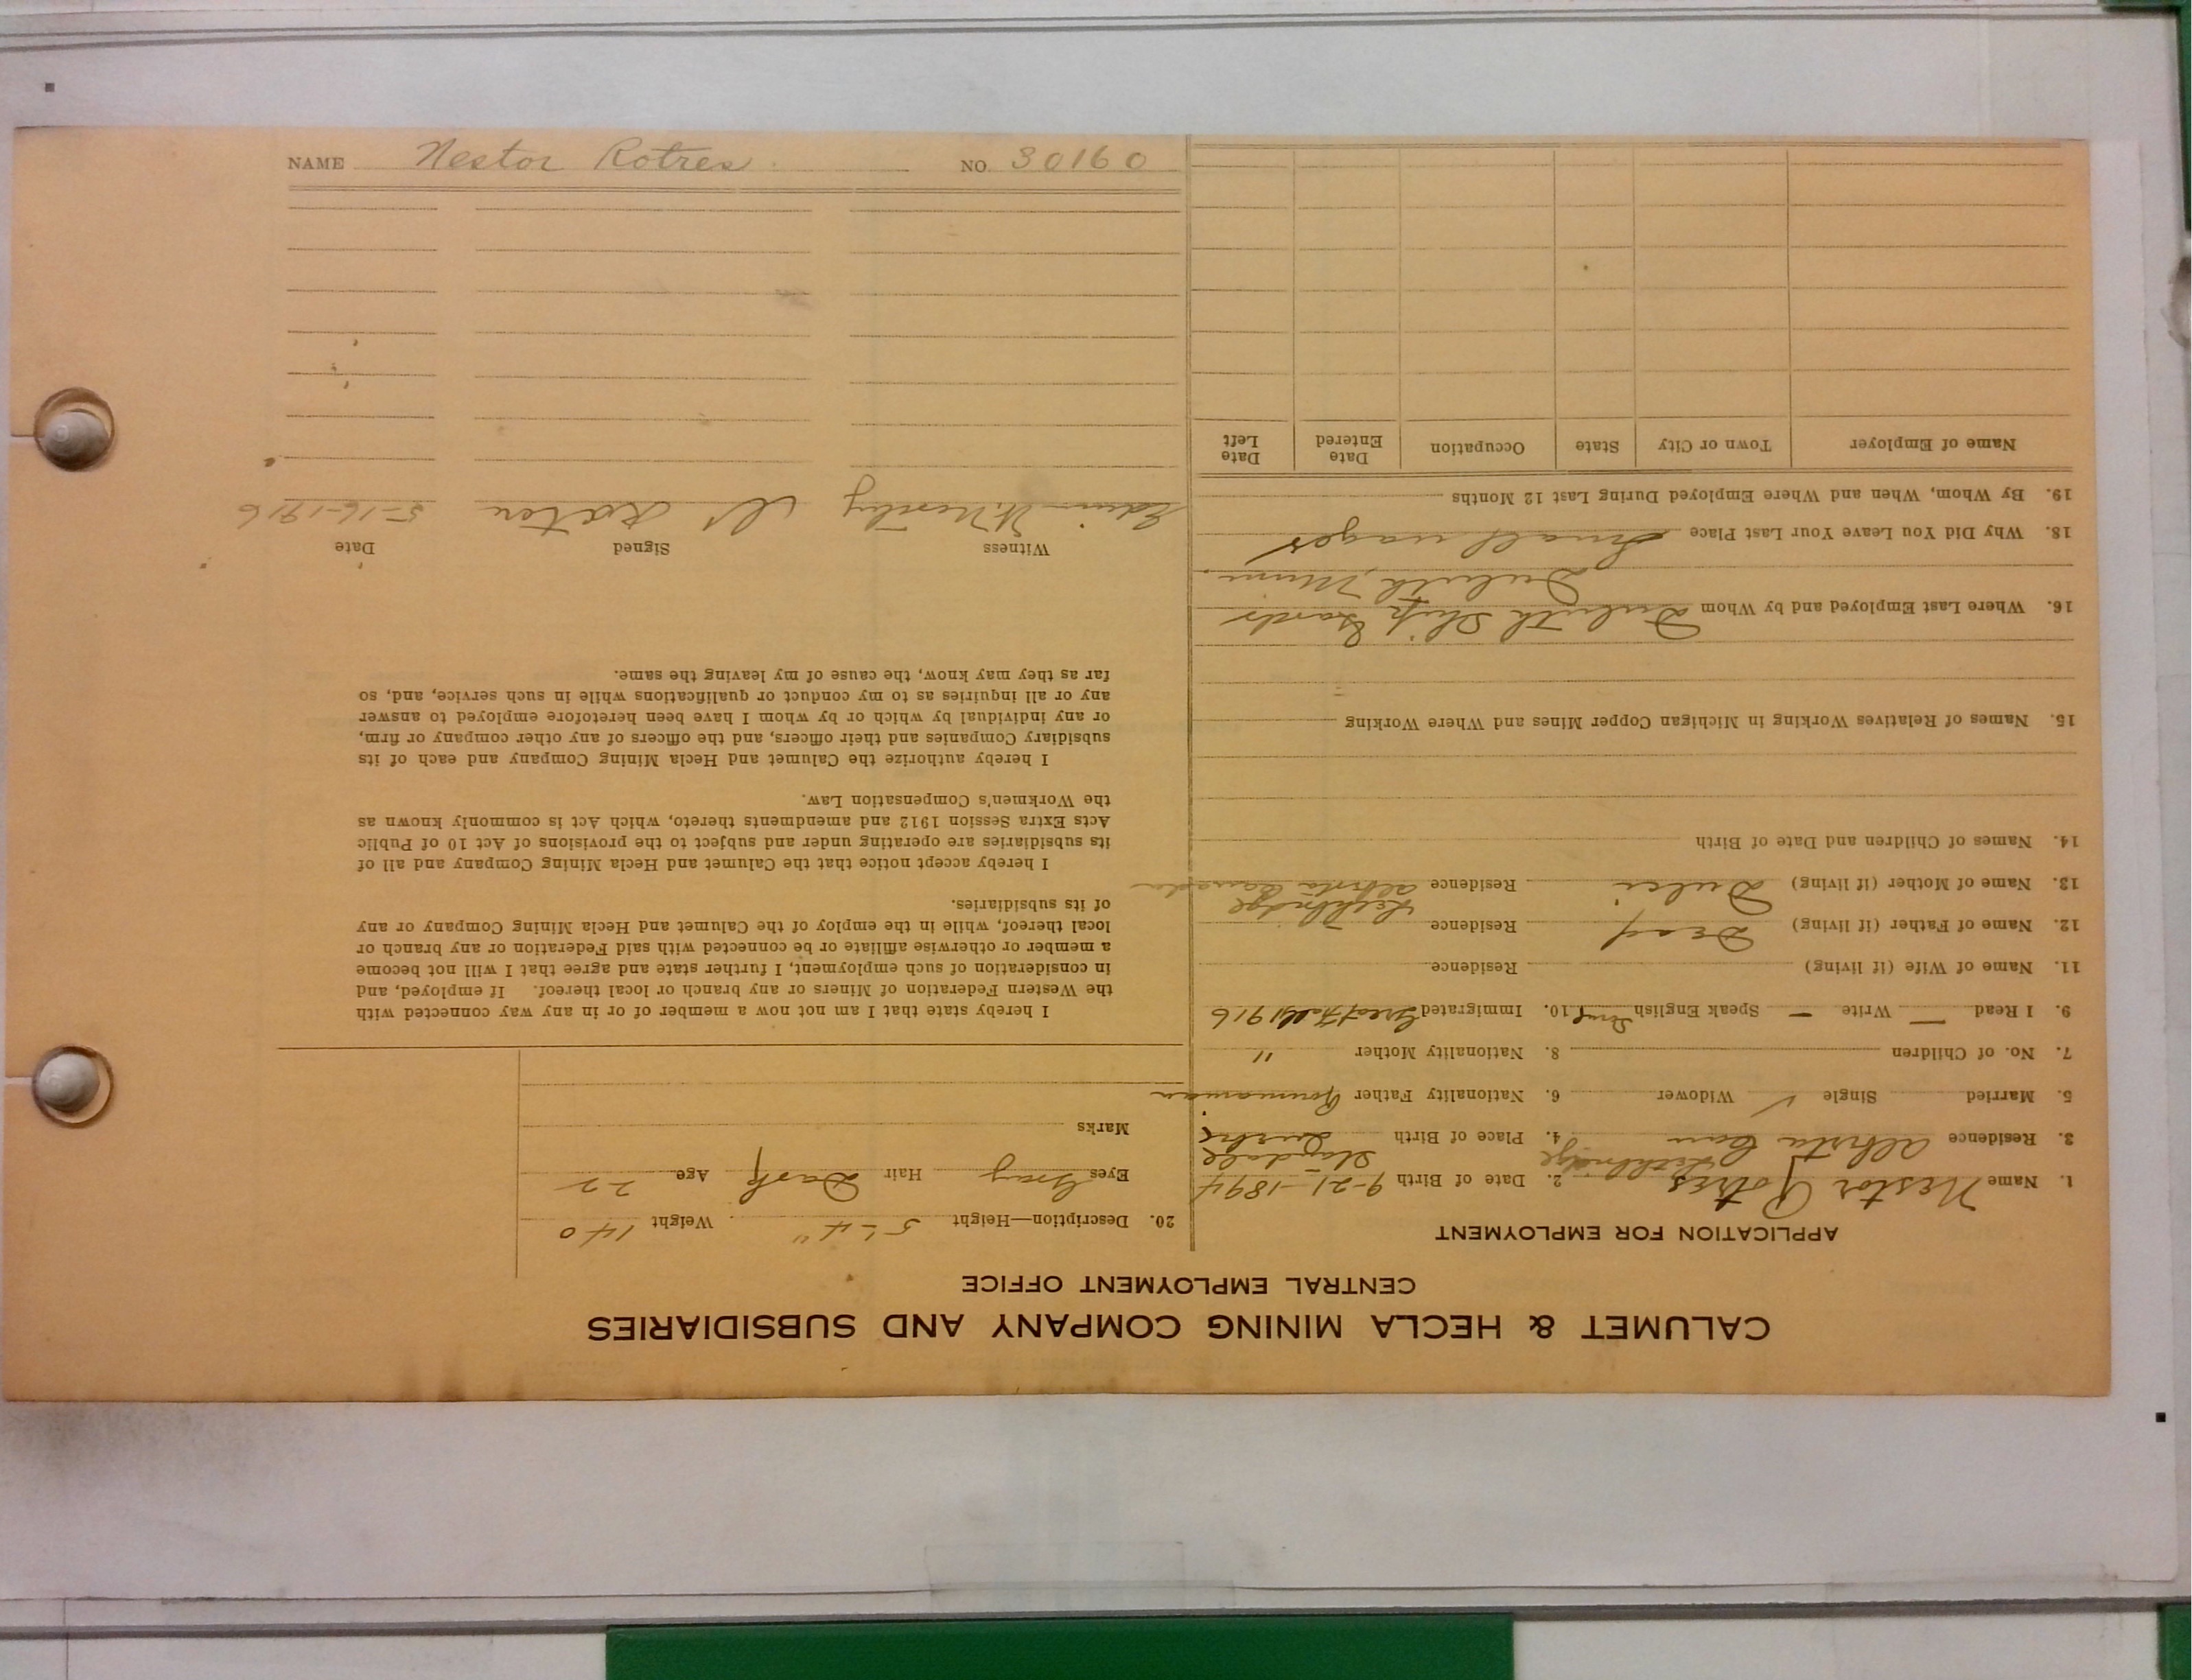 NAME Nestor Rotres NO. 30160
CALUMET & HECLA MINING COMPANY AND SUBSIDIARIES
CENTRAL EMPLOYMENT OFFICE
APPLICATION FOR EMPLOYMENT
1. Name Nestor Rotres 2. Date of Birth 9-21-1894
Lethbridge
3. Residence Alberta Can 4. Place of Birth
5. Married Single ✓ Widower 6. Nationality Father Roumanian
7. No. of Children 8. Nationality Mother "
9. I Read — Write — Speak English 10. Immigrated Great Falls 1916
11. Name of Wife (if living) Residence
12. Name of Father (if living) Dead Residence Lethbridge
13. Name of Mother (if living) Residence Alberta Canada
14. Names of Children and Date of Birth
15. Names of Relatives Working in Michigan Copper Mines and Where Working
16. Where Last Employed and by Whom Duluth Ship Yards
Duluth, Minn.
18. Why Did You Leave Your Last Place Small wages
19. By Whom, When and Where Employed During Last 12 Months
Name of Employer Town or City State Occupation Date Entered Date Left
20. Description—Height 5'-4" Weight 140
Eyes Gray Hair Dark Age 22
Marks
I hereby state that I am not now a member of or in any way connected with
the Western Federation of Miners or any branch or local thereof. If employed, and
in consideration of such employment, I further state and agree that I will not become
a member or otherwise affiliate or be connected with said Federation or any branch or
local thereof, while in the employ of the Calumet and Hecla Mining Company or any
of its subsidiaries.
I hereby accept notice that the Calumet and Hecla Mining Company and all of
its subsidiaries are operating under and subject to the provisions of Act 10 of Public
Acts Extra Session 1912 and amendments thereto, which Act is commonly known as
the Workmen's Compensation Law.
I hereby authorize the Calumet and Hecla Mining Company and each of its
subsidiary Companies and their officers, and the officers of any other company or firm,
or any individual by which or by whom I have been heretofore employed to answer
any or all inquiries as to my conduct or qualifications while in such service, and, so
far as they may know, the cause of my leaving the same.
Witness Signed Date
Edwin 5-16-1916